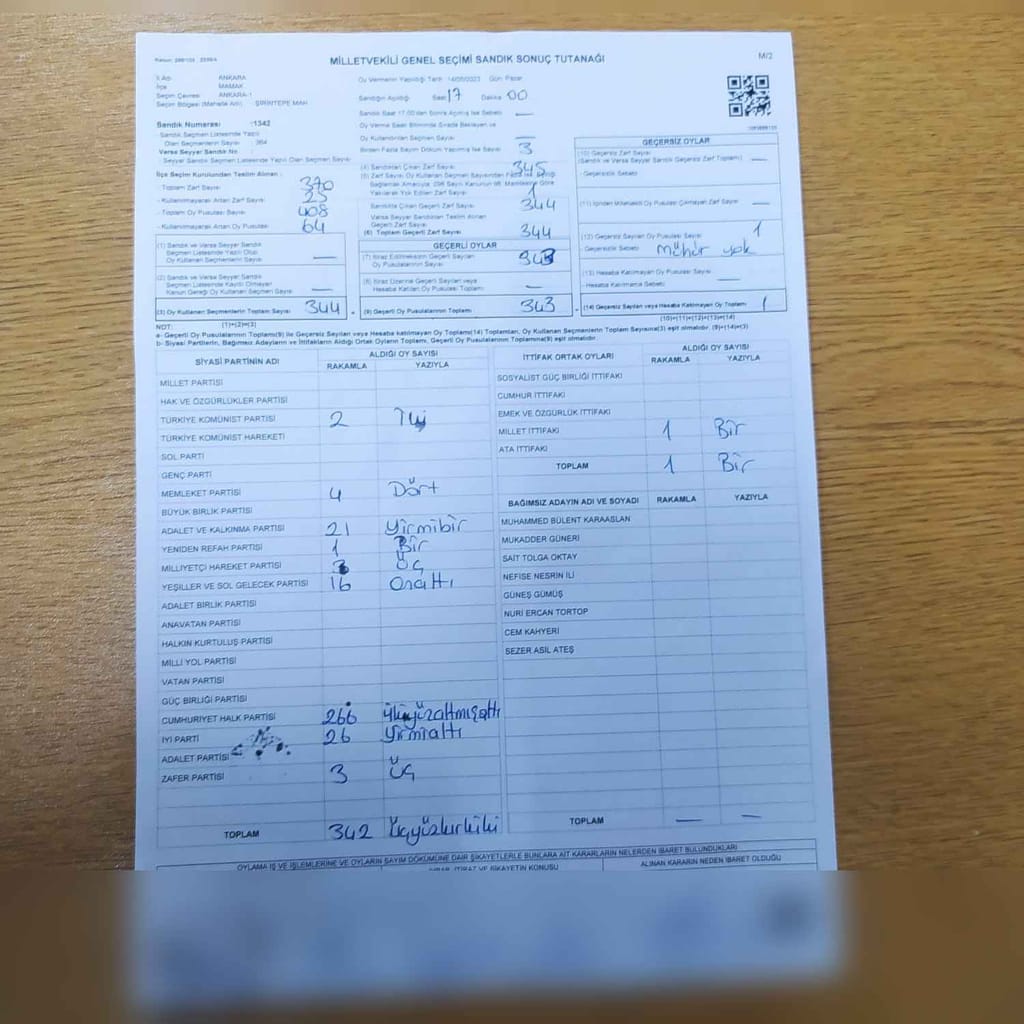 MİLLETVEKİLİ GENEL SEÇİMİ SANDIK SONUÇ TUTANAĞI
M/2
İl Adı ANKARA
İlçe MAMAK
Seçim Çevresi ANKARA-1
Seçim Bölgesi (Mahalle Adı) ŞİRİNTEPE MAH
Sandık Numarası 1342
- Sandık Seçmen Listesinde Yazılı
Olan Seçmenlerin Sayısı 364
Varsa Seyyar Sandık No
- Seyyar Sandık Seçmen Listesinde Yazılı Olan Seçmen Sayısı
İlçe Seçim Kurulundan Teslim Alınan
- Toplam Zarf Sayısı 370
- Kullanılmayarak Artan Zarf Sayısı 25
- Toplam Oy Pusulası Sayısı 408
- Kullanılmayarak Artan Oy Pusulası 64
(1) Sandık ve Varsa Seyyar Sandık
Seçmen Listesinde Yazılı Olup
Oy Kullanan Seçmenlerin Sayısı —
(2) Sandık ve Varsa Seyyar Sandık
Seçmen Listesinde Kayıtlı Olmayan
Kanun Gereği Oy Kullanan Seçmen Sayısı —
(3) Oy Kullanan Seçmenlerin Toplam Sayısı 344
(1)+(2)=(3)
Oy Vermenin Yapıldığı Tarih 14/05/2023 Gün Pazar
Sandığın Açıldığı Saat 17 Dakika 00
Sandık Saat 17.00'den Sonra Açılmış İse Sebebi —
Oy Verme Saati Bitiminde Sırada Bekleyen ve
Oy Kullandırılan Seçmen Sayısı —
Birden Fazla Sayım Döküm Yapılmış İse Sayısı 3
(4) Sandıktan Çıkan Zarf Sayısı 345
(5) Zarf Sayısı Oy Kullanan Seçmen Sayısından Fazla İse Eşitliği
Bağlamak Amacıyla 298 Sayılı Kanunun 98. Maddesine Göre
Yakılarak Yok Edilen Zarf Sayısı 1
Sandıkta Çıkan Geçerli Zarf Sayısı 344
Varsa Seyyar Sandıktan Teslim Alınan
Geçerli Zarf Sayısı
(6) Toplam Geçerli Zarf Sayısı 344
GEÇERLİ OYLAR
(7) İtiraz Edilmeksizin Geçerli Sayılan
Oy Pusulalarının Sayısı 343
(8) İtiraz Üzerine Geçerli Sayılan veya
Hesaba Katılan Oy Pusulası Toplamı —
(9) Geçerli Oy Pusulalarının Toplamı 343
GEÇERSİZ OYLAR
(10) Geçersiz Zarf Sayısı
(Sandık ve Varsa Seyyar Sandık Geçersiz Zarf Toplamı) —
- Geçersizlik Sebebi
(11) İçinden Milletvekili Oy Pusulası Çıkmayan Zarf Sayısı —
(12) Geçersiz Sayılan Oy Pusulası Sayısı 1
- Geçersizlik Sebebi mühür yok
(13) Hesaba Katılmayan Oy Pusulası Sayısı —
- Hesaba Katılmama Sebebi
(14) Geçersiz Sayılan veya Hesaba Katılmayan Oy Toplamı 1
(10)+(11)+(12)+(13)=(14)
NOT:
a- Geçerli Oy Pusulalarının Toplamı(9) ile Geçersiz Sayılan veya Hesaba katılmayan Oy Toplamı(14) Toplamları, Oy Kullanan Seçmenlerin Toplam Sayısına(3) eşit olmalıdır. (9)+(14)=(3)
b- Siyasi Partilerin, Bağımsız Adayların ve İttifakların Aldığı Ortak Oyların Toplamı, Geçerli Oy Pusulalarının Toplamına(9) eşit olmalıdır.
SİYASİ PARTİNİN ADI
ALDIĞI OY SAYISI
RAKAMLA YAZIYLA
MİLLET PARTİSİ
HAK VE ÖZGÜRLÜKLER PARTİSİ
TÜRKİYE KOMÜNİST PARTİSİ 2 İki
TÜRKİYE KOMÜNİST HAREKETİ
SOL PARTİ
GENÇ PARTİ
MEMLEKET PARTİSİ 4 Dört
BÜYÜK BİRLİK PARTİSİ
ADALET VE KALKINMA PARTİSİ 21 Yirmibir
YENİDEN REFAH PARTİSİ 1 Bir
MİLLİYETÇİ HAREKET PARTİSİ 3 Üç
YEŞİLLER VE SOL GELECEK PARTİSİ 16 Onaltı
ADALET BİRLİK PARTİSİ
ANAVATAN PARTİSİ
HALKIN KURTULUŞ PARTİSİ
MİLLİ YOL PARTİSİ
VATAN PARTİSİ
GÜÇ BİRLİĞİ PARTİSİ
CUMHURİYET HALK PARTİSİ 266 ikiyüzaltmışaltı
İYİ PARTİ 26 Yirmialtı
ADALET PARTİSİ
ZAFER PARTİSİ 3 Üç
TOPLAM 342 Üçyüzkırkiki
İTTİFAK ORTAK OYLARI
ALDIĞI OY SAYISI
RAKAMLA YAZIYLA
SOSYALİST GÜÇ BİRLİĞİ İTTİFAKI
CUMHUR İTTİFAKI
EMEK VE ÖZGÜRLÜK İTTİFAKI
MİLLET İTTİFAKI 1 Bir
ATA İTTİFAKI
TOPLAM 1 Bir
BAĞIMSIZ ADAYIN ADI VE SOYADI RAKAMLA YAZIYLA
MUHAMMED BÜLENT KARAASLAN
MUKADDER GÜNERİ
SAİT TOLGA OKTAY
NEFİSE NESRİN İLİ
GÜNEŞ GÜMÜŞ
NURİ ERCAN TORTOP
CEM KAHYERİ
SEZER ASİL ATEŞ
TOPLAM — —
OYLAMA İŞ VE İŞLEMLERİNE VE OYLARIN SAYIM DÖKÜMÜNE DAİR ŞİKAYETLERLE BUNLARA AİT KARARLARIN NELERDEN İBARET BULUNDUKLARI
İTİRAZ VE ŞİKAYETİN KONUSU
ALINAN KARARIN NEDEN İBARET OLDUĞU